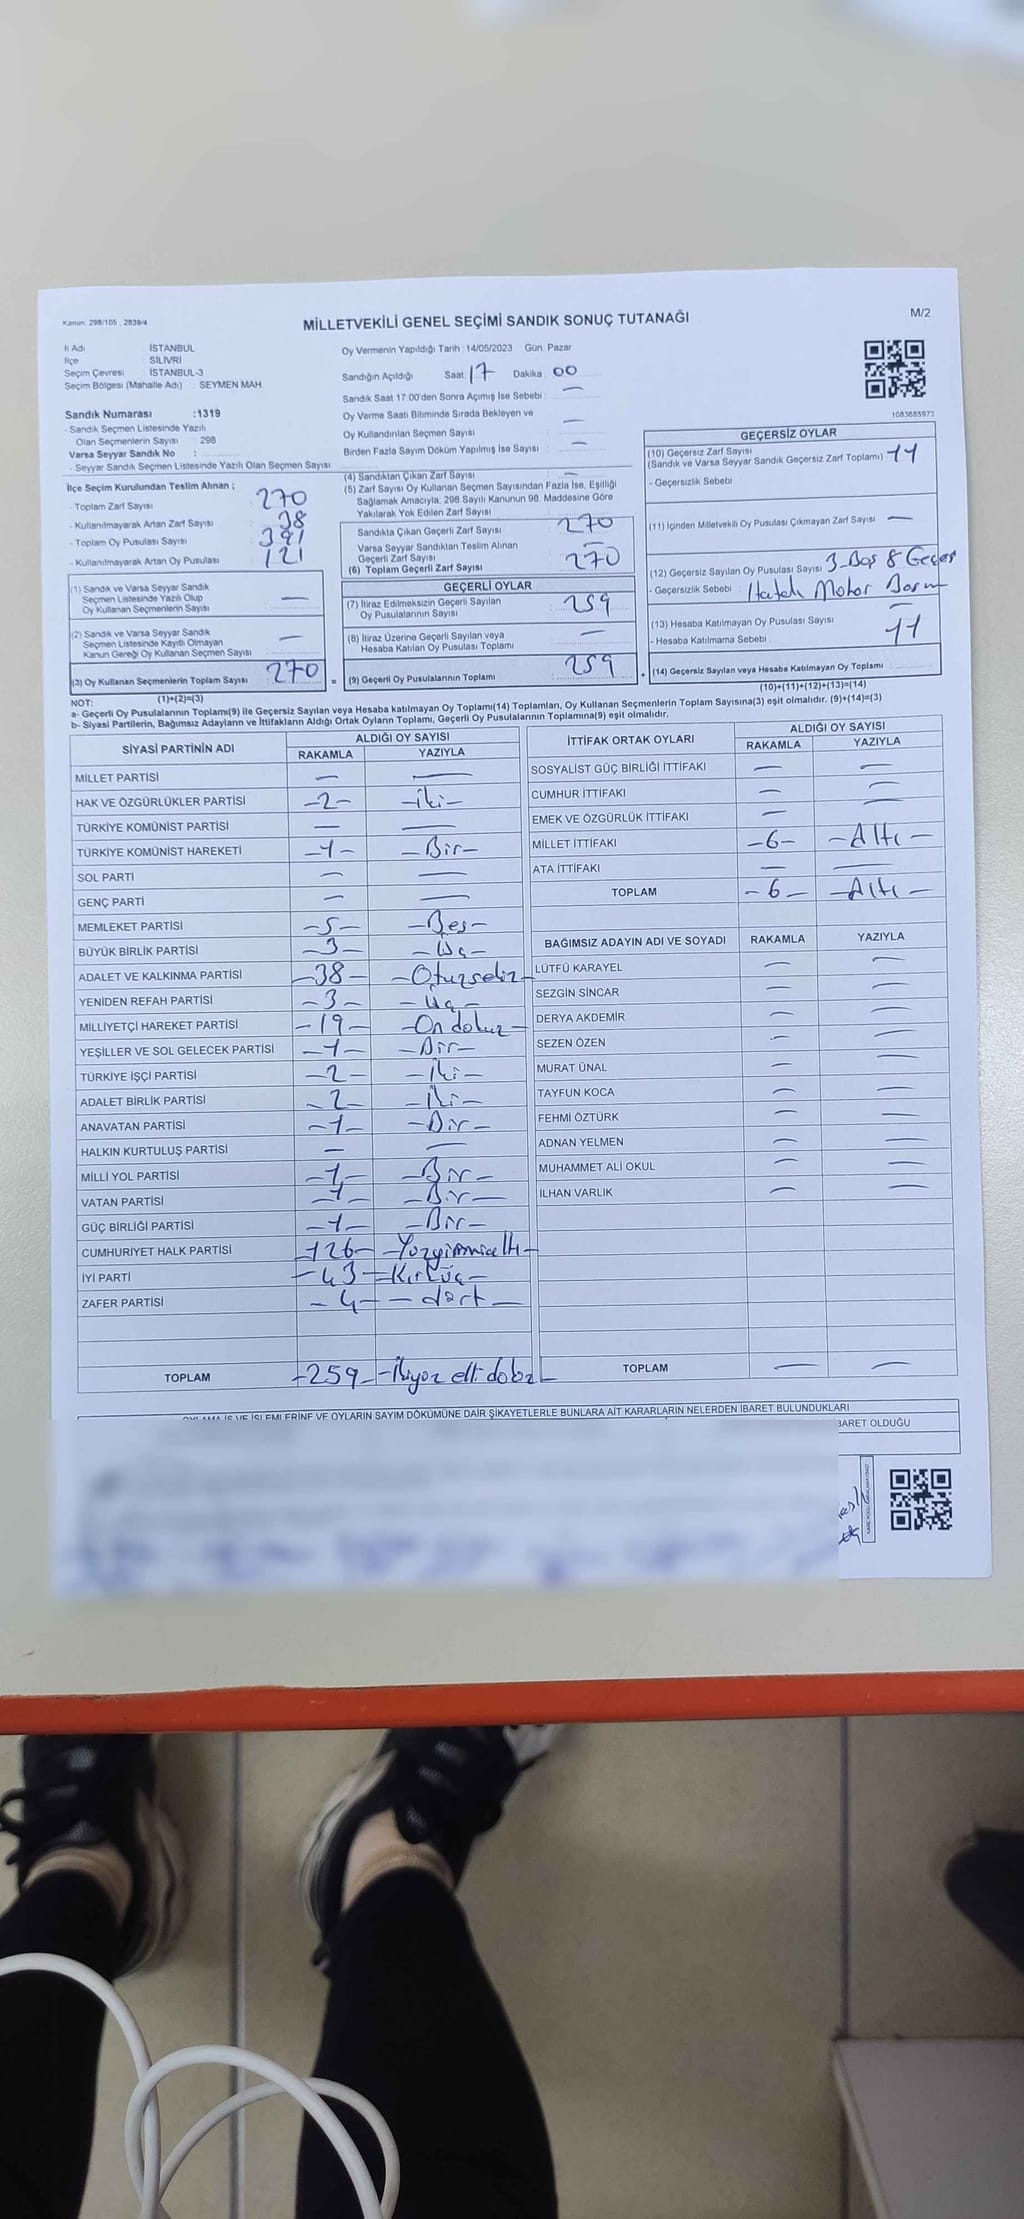 Kanun: 298/105 , 2839/4
MİLLETVEKİLİ GENEL SEÇİMİ SANDIK SONUÇ TUTANAĞI
M/2
İl Adı : İSTANBUL
İlçe : SİLİVRİ
Seçim Çevresi : İSTANBUL-3
Seçim Bölgesi (Mahalle Adı) : SEYMEN MAH.
Sandık Numarası :1319
- Sandık Seçmen Listesinde Yazılı
Olan Seçmenlerin Sayısı : 298
Varsa Seyyar Sandık No :
- Seyyar Sandık Seçmen Listesinde Yazılı Olan Seçmen Sayısı
Oy Vermenin Yapıldığı Tarih : 14/05/2023 Gün: Pazar
Sandığın Açıldığı Saat: 17 Dakika: 00
Sandık Saat 17.00'den Sonra Açımış İse Sebebi : —
Oy Verme Saati Bitiminde Sırada Bekleyen ve
Oy Kullandırılan Seçmen Sayısı —
Birden Fazla Sayım Döküm Yapılmış İse Sayısı : —
1083685973
İlçe Seçim Kurulundan Teslim Alınan ;
- Toplam Zarf Sayısı 270
- Kullanılmayarak Artan Zarf Sayısı 38
- Toplam Oy Pusulası Sayısı 391
- Kullanılmayarak Artan Oy Pusulası 121
(1) Sandık ve Varsa Seyyar Sandık
Seçmen Listesinde Yazılı Olup
Oy Kullanan Seçmenlerin Sayısı —
(2) Sandık ve Varsa Seyyar Sandık
Seçmen Listesinde Kayıtlı Olmayan
Kanun Gereği Oy Kullanan Seçmen Sayısı —
(3) Oy Kullanan Seçmenlerin Toplam Sayısı 270
(1)+(2)=(3)
(4) Sandıktan Çıkan Zarf Sayısı —
(5) Zarf Sayısı Oy Kullanan Seçmen Sayısından Fazla İse, Eşitliği
Sağlamak Amacıyla, 298 Sayılı Kanunun 98. Maddesine Göre
Yakılarak Yok Edilen Zarf Sayısı
Sandıkta Çıkan Geçerli Zarf Sayısı 270
Varsa Seyyar Sandıktan Teslim Alınan
Geçerli Zarf Sayısı —
(6) Toplam Geçerli Zarf Sayısı 270
GEÇERLİ OYLAR
(7) İtiraz Edilmeksizin Geçerli Sayılan
Oy Pusulalarının Sayısı 259
(8) İtiraz Üzerine Geçerli Sayılan veya
Hesaba Katılan Oy Pusulası Toplamı —
= (9) Geçerli Oy Pusulalarının Toplamı 259 +
GEÇERSİZ OYLAR
(10) Geçersiz Zarf Sayısı
(Sandık ve Varsa Seyyar Sandık Geçersiz Zarf Toplamı) 11
- Geçersizlik Sebebi
(11) İçinden Milletvekili Oy Pusulası Çıkmayan Zarf Sayısı —
(12) Geçersiz Sayılan Oy Pusulası Sayısı 3 Boş 8 Geçer
- Geçersizlik Sebebi : Hatalı
(13) Hesaba Katılmayan Oy Pusulası Sayısı —
- Hesaba Katılmama Sebebi 11
(14) Geçersiz Sayılan veya Hesaba Katılmayan Oy Toplamı
(10)+(11)+(12)+(13)=(14)
NOT:
a- Geçerli Oy Pusulalarının Toplamı(9) ile Geçersiz Sayılan veya Hesaba katılmayan Oy Toplamı(14) Toplamları, Oy Kullanan Seçmenlerin Toplam Sayısına(3) eşit olmalıdır. (9)+(14)=(3)
b- Siyasi Partilerin, Bağımsız Adayların ve İttifakların Aldığı Ortak Oyların Toplamı, Geçerli Oy Pusulalarının Toplamına(9) eşit olmalıdır.
SİYASİ PARTİNİN ADI ALDIĞI OY SAYISI
RAKAMLA YAZIYLA
MİLLET PARTİSİ — —
HAK VE ÖZGÜRLÜKLER PARTİSİ -2- -İki-
TÜRKİYE KOMÜNİST PARTİSİ — —
TÜRKİYE KOMÜNİST HAREKETİ -1- -Bir-
SOL PARTİ — —
GENÇ PARTİ — —
MEMLEKET PARTİSİ -5- -Beş-
BÜYÜK BİRLİK PARTİSİ -3- -Üç-
ADALET VE KALKINMA PARTİSİ -38- -Otuzsekiz-
YENİDEN REFAH PARTİSİ -3- -Üç-
MİLLİYETÇİ HAREKET PARTİSİ -19- -On dokuz-
YEŞİLLER VE SOL GELECEK PARTİSİ -1- -Bir-
TÜRKİYE İŞÇİ PARTİSİ -2- -İki-
ADALET BİRLİK PARTİSİ -2- -İki-
ANAVATAN PARTİSİ -1- -Bir-
HALKIN KURTULUŞ PARTİSİ — —
MİLLİ YOL PARTİSİ -1- -Bir-
VATAN PARTİSİ -1- -Bir-
GÜÇ BİRLİĞİ PARTİSİ -1- -Bir-
CUMHURİYET HALK PARTİSİ -126- -Yüzyirmialtı-
İYİ PARTİ -43- -Kırküç-
ZAFER PARTİSİ -4- -dört-
TOPLAM -259- -İkiyüz elli dokuz-
İTTİFAK ORTAK OYLARI ALDIĞI OY SAYISI
RAKAMLA YAZIYLA
SOSYALİST GÜÇ BİRLİĞİ İTTİFAKI — —
CUMHUR İTTİFAKI — —
EMEK VE ÖZGÜRLÜK İTTİFAKI — —
MİLLET İTTİFAKI -6- -Altı-
ATA İTTİFAKI — —
TOPLAM -6- -Altı-
BAĞIMSIZ ADAYIN ADI VE SOYADI RAKAMLA YAZIYLA
LÜTFÜ KARAYEL — —
SEZGİN SİNCAR — —
DERYA AKDEMİR — —
SEZEN ÖZEN — —
MURAT ÜNAL — —
TAYFUN KOCA — —
FEHMİ ÖZTÜRK — —
ADNAN YELMEN — —
MUHAMMET ALİ OKUL — —
İLHAN VARLIK — —
TOPLAM — —
OYLAMA İŞ VE İŞLEMLERİNE VE OYLARIN SAYIM DÖKÜMÜNE DAİR ŞİKAYETLERLE BUNLARA AİT KARARLARIN NELERDEN İBARET BULUNDUKLARI
BARET OLDUĞU